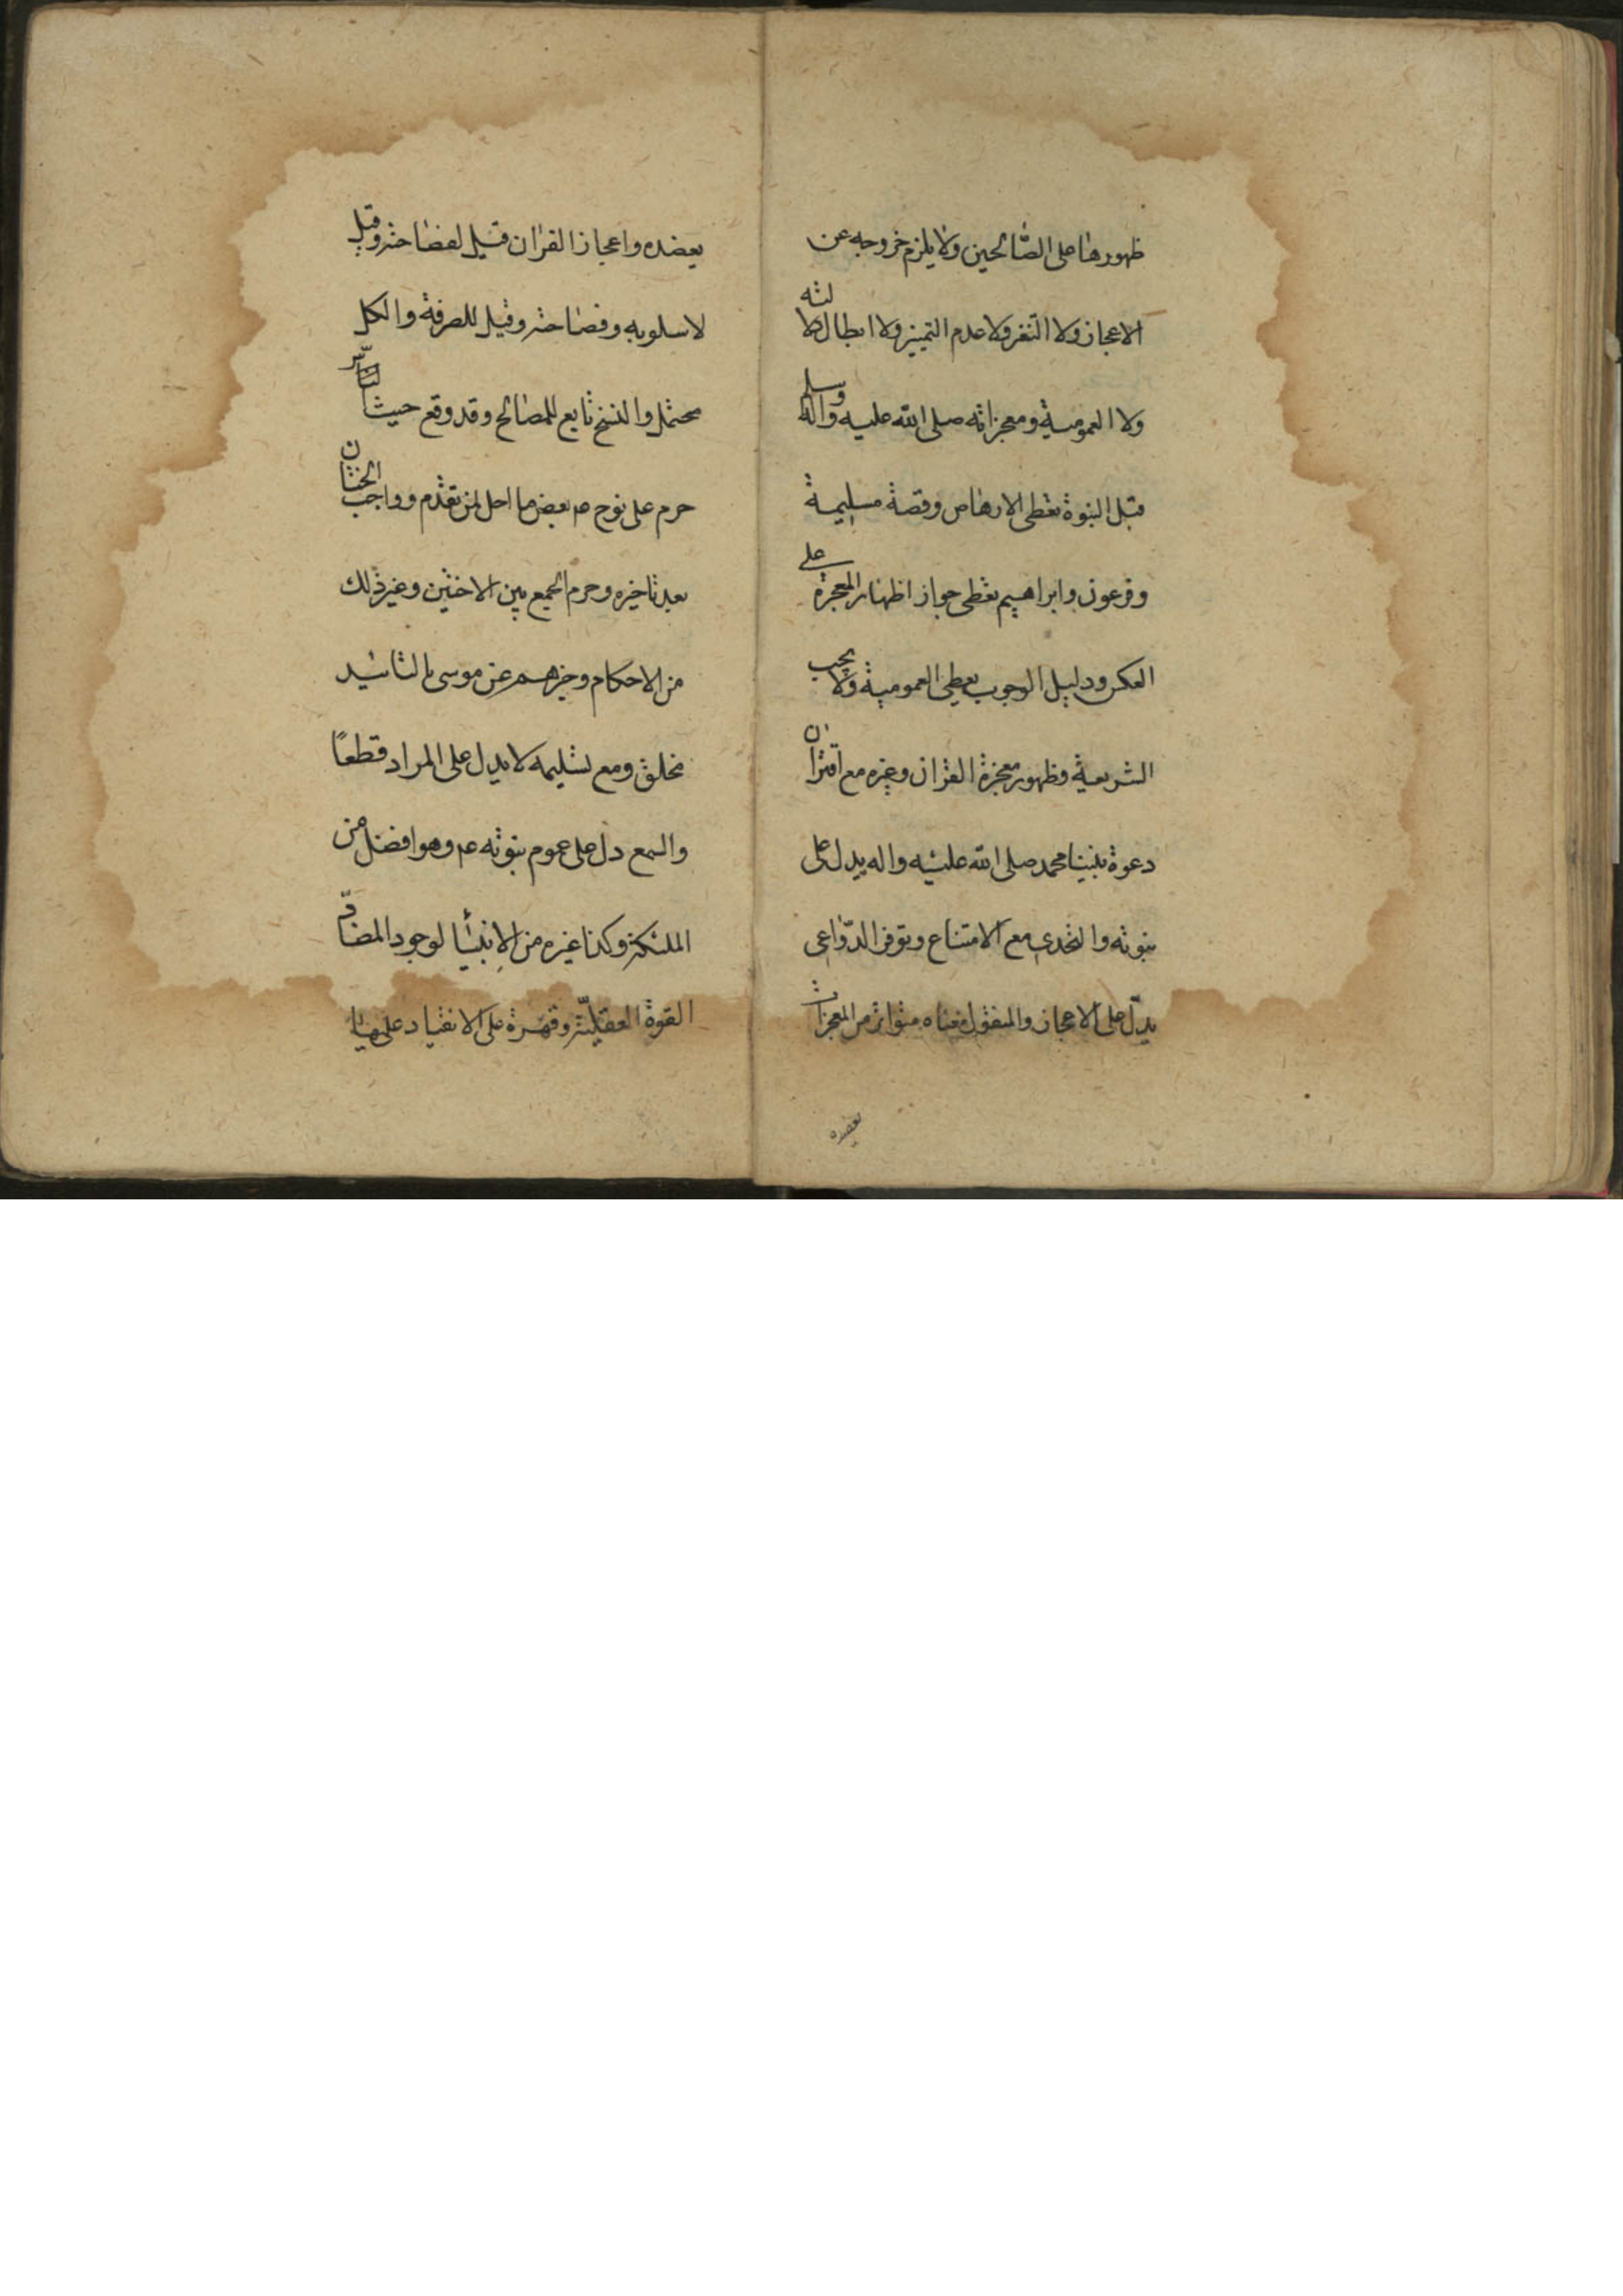 ظهورها على الصّالحين ولا يلزم خروجه عن
الاعجاز ولا التنفر ولا عدم التميز ولا ابطال دلالته
ولا العمومية ومعجزاته صلى الله عليه واله وسلم
قبل النبوة تعطى الارهاص وقصة مسيلمة
وفرعون وابراهيم تعطى جواز اظهار المعجزة على
العكس ودليل الوجوب يعطى العمومية ولا يجب
الشريعية وظهور معجزة القران وغيره مع اقتران
دعوة نبينا محمد صلى الله عليه واله يدل على
نبوته والتحدى مع الامتناع وتوفر الدّواعى
يدلّ على الاعجاز والمنقول معناه متواتر من المعجزات
يعضده
يعضده واعجاز القران قيل لفصاحته وقيل
لاسلوبه وفصاحته وقيل للصرفة والكل
محتمل والنسخ تابع للمصالح وقد وقع حيث
حرم على نوح عم بعض ما احل لمن تقدّم وواجب الختان
بعد تاخيره وحرم الجمع بين الاختين وغير ذلك
من الاحكام وخبرهم عن موسى بالتائيد
مختلق ومع تسليمه لا يدل على المراد قطعًا
والسمع دل على عموم نبوته عم وهو افضل من
الملئكة وكذا غيره من الانبيأ لوجود المضادّ
القوة العقلية وقهره على الانقياد عليها